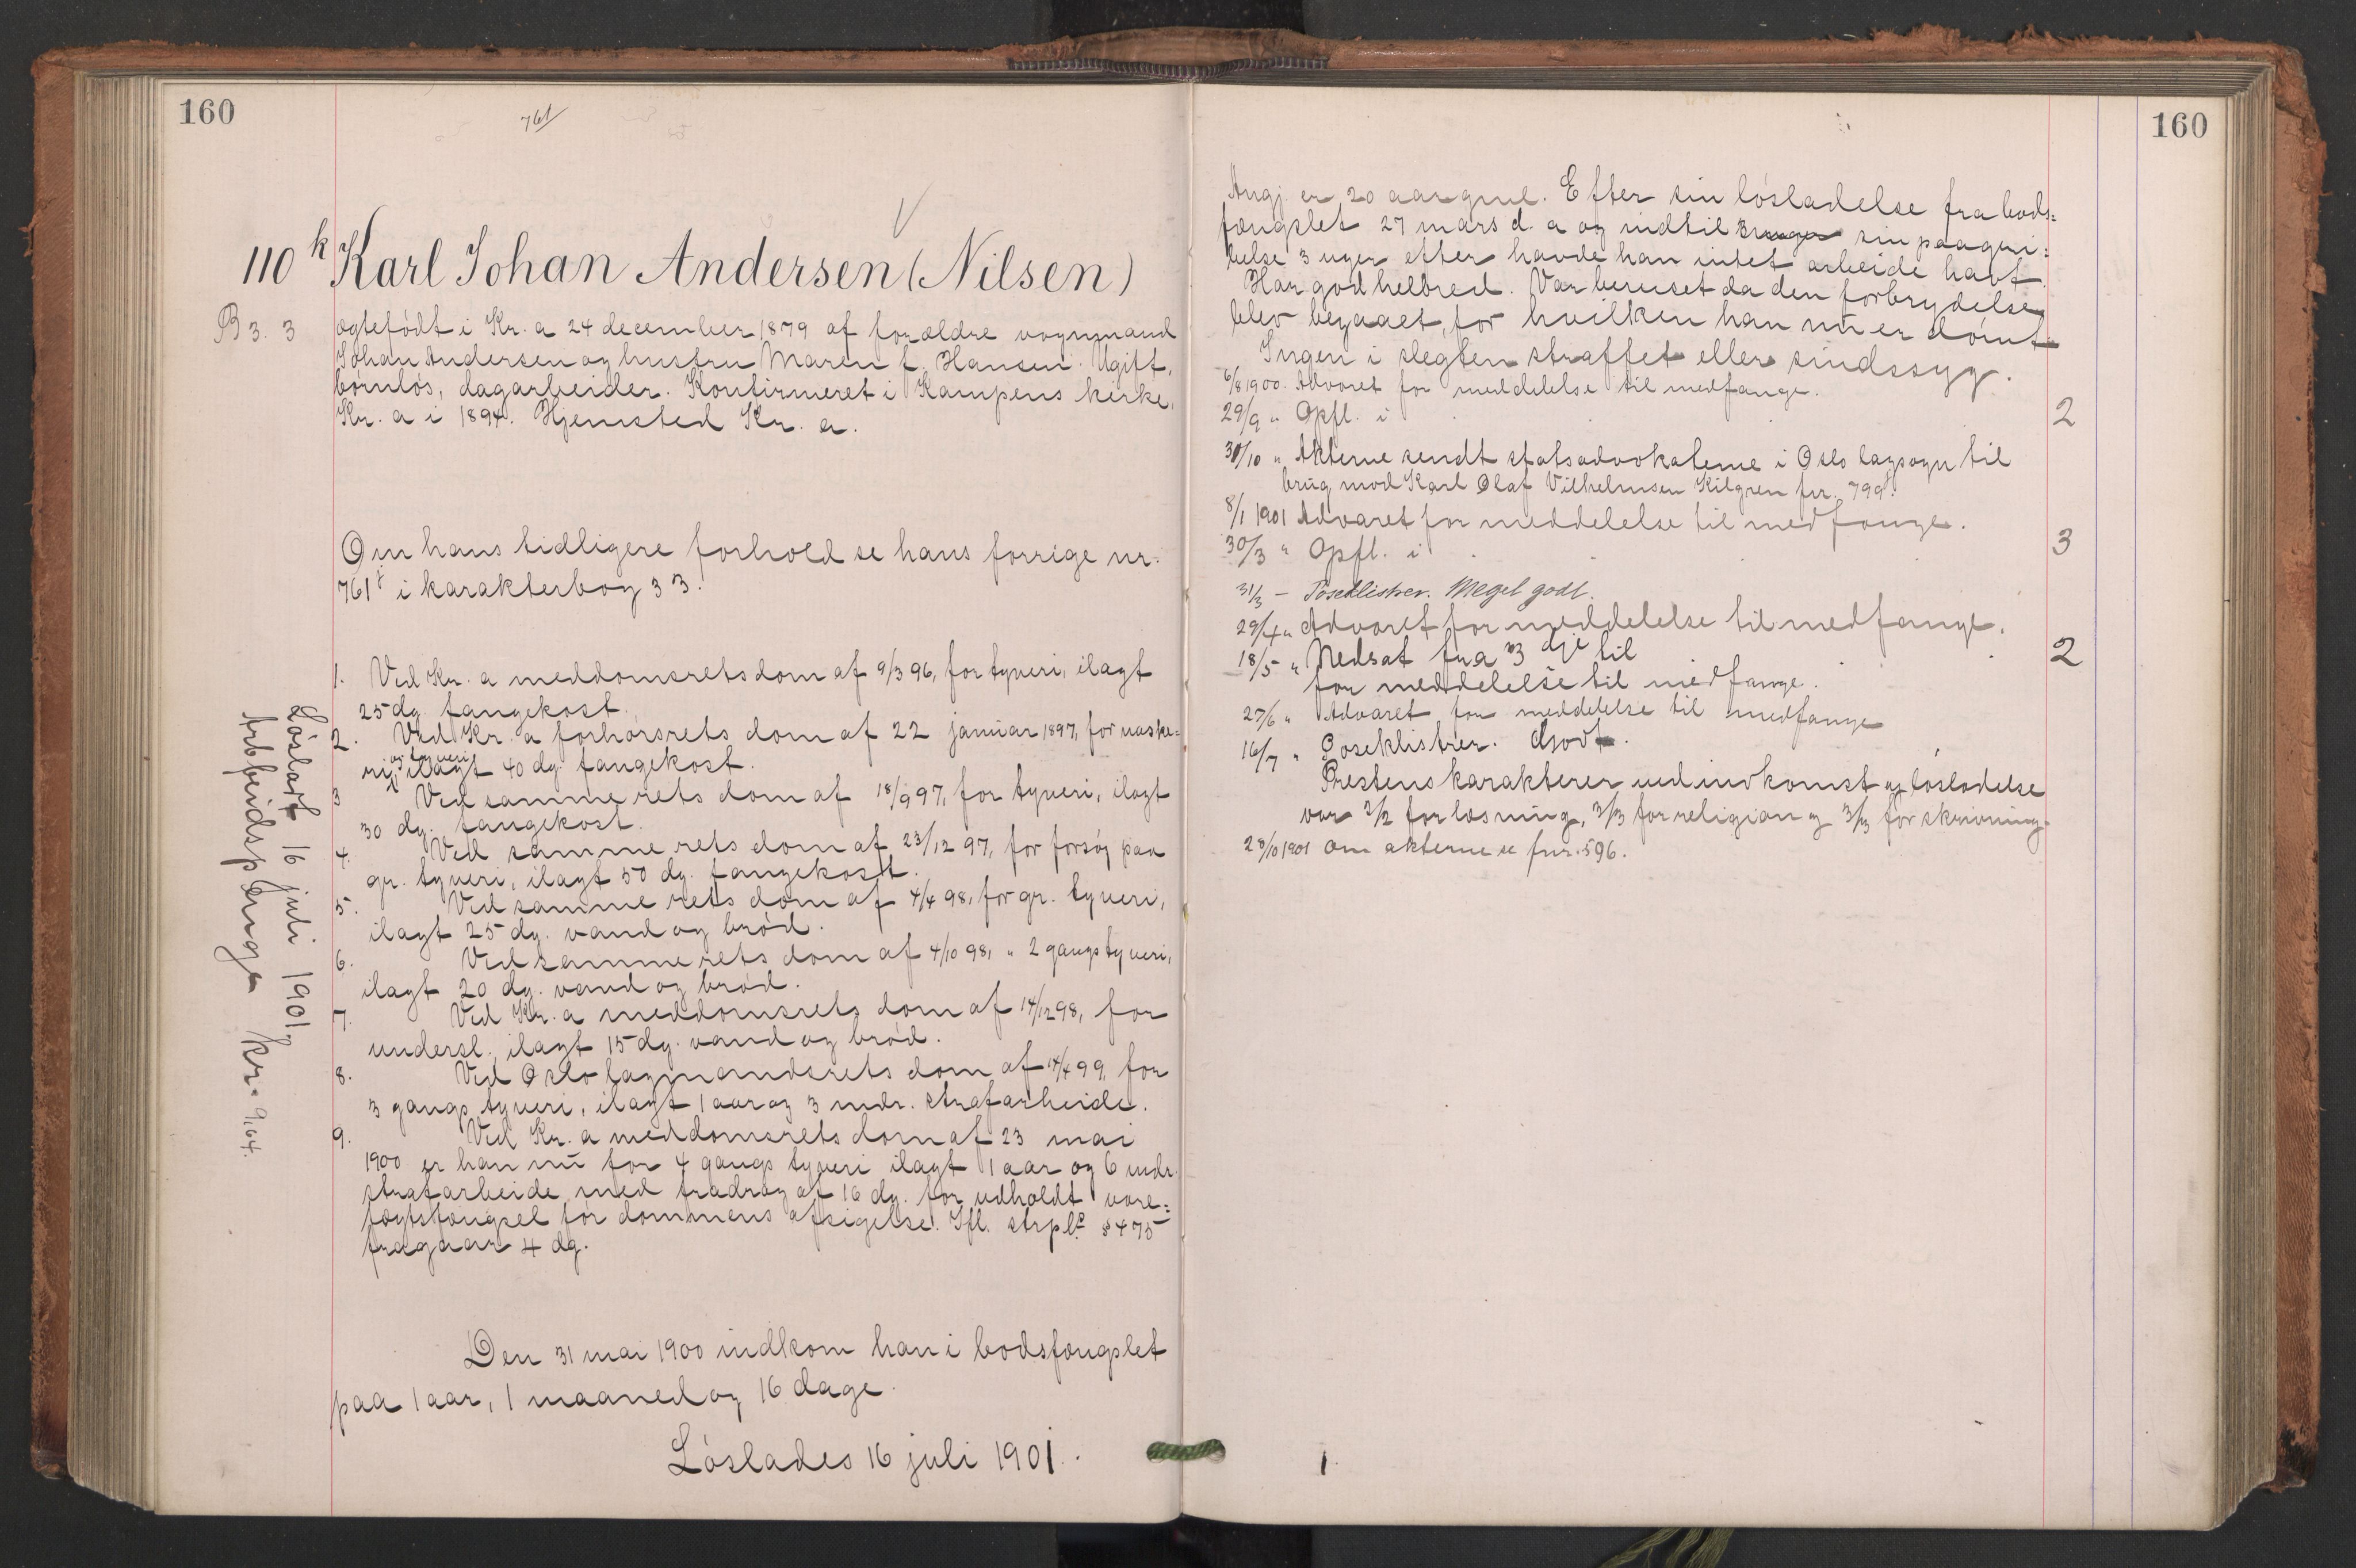 160
761
110 k Karl Johan Andersen (Nilsen)
B 3. 3
ægtefødt i Kr. a 24 december 1879 af forældre vognmand
Johan Andersen og hustru Maren f. Hansen. Ugift,
børnløs, dagarbeider. Konfirmeret i Kampens kirke,
Kr. a i 1894. Hjemsted Kr. a.
Om hans tidligere forhold se hans forrige nr.
761 i i karakterbog 33.
1. Ved Kr. a meddomsrets dom af 9/3 96, for tyveri, ilagt
25 dg. fangekost.
2. Ved Kr. a forhørsrets dom af 22 januar 1897, for naske-
ri og tyveri ilagt 40 dg. fangekost.
3 Ved samme rets dom af 18/9 97, for tyveri, ilagt
30 dg. fangekost.
4. Ved samme rets dom af 23/12 97, for forsøg paa
gr. tyveri, ilagt 50 dg. fangekost.
5. Ved samme rets dom af 4/4 98, for gr. tyveri,
ilagt 25 dg. vand og brød.
6. Ved samme rets dom af 4/10 98, " 2 gangs tyveri,
ilagt 20 dg. vand og brød.
7. Ved Kr. a meddomsrets dom af 14/12 98, for
undersl. ilagt 15 dg. vand og brød.
8. Ved Oslo lagmandsrets dom af 14/4 99, for
3 gangs tyveri, ilagt 1 aar og 3 mdr. strafarbeide.
9. Ved Kr. a meddomsrets dom af 23 mai
1900 er han nu for 4 gangs tyveri ilagt 1 aar og 6 mdr.
strafarbeide med fradrag af 16 dg. for udholdt vare=
tægtsfængsel før dommens afsigelse. Ifl. strpl. § 475
fragaar 4 dg.
Den 31 mai 1900 indkom han i bodsfængslet
paa 1 aar, 1 maaned og 16 dage.
Løslades 16 juli 1901.
Løsladt 16 juli 1901,
Arbbeidspenge kr. 9,64.
160
Angj. er 20 aar gml. Efter sin løsladelse fra bods=
fængslet 27 mars d. a og indtil 3 uger sin paagri=
belse 3 uger efter havde han intet arbeide havt.
Har god helbred. Var beruset da den forbrydelse
blev begaaet, for hvilken han nu er dømt.
Ingen i slegten straffet eller sindssyg.
6/8 1900. Advaret for meddelelse til medfange.
29/9 " Opfl. i 2
30/10 " Akterne sendt statsadvokaterne i Oslo lagsogn til
brug mod Karl Olaf Vilhelmsen Kilgren fnr. 799
8/1 1901 Advaret for meddelelse til medfange.
30/3 " Opfl. i 3
31/3 – Poseklistrer. Meget godt.
29/4 " Advaret for meddelelse til medfange.
18/5 " Nedsat fra 3 dje til 2
for meddelelse til medfange.
27/6 " Advaret for meddelelse til medfange
16/7 " Poseklistrer. Godt.
Prestens karakterer ved indkomst og løsladelse
var 2/2 for læsning, 3/3 for religion og 3/3 for skrivning.
23/10 1901 Om akterne se fnr. 596.
1